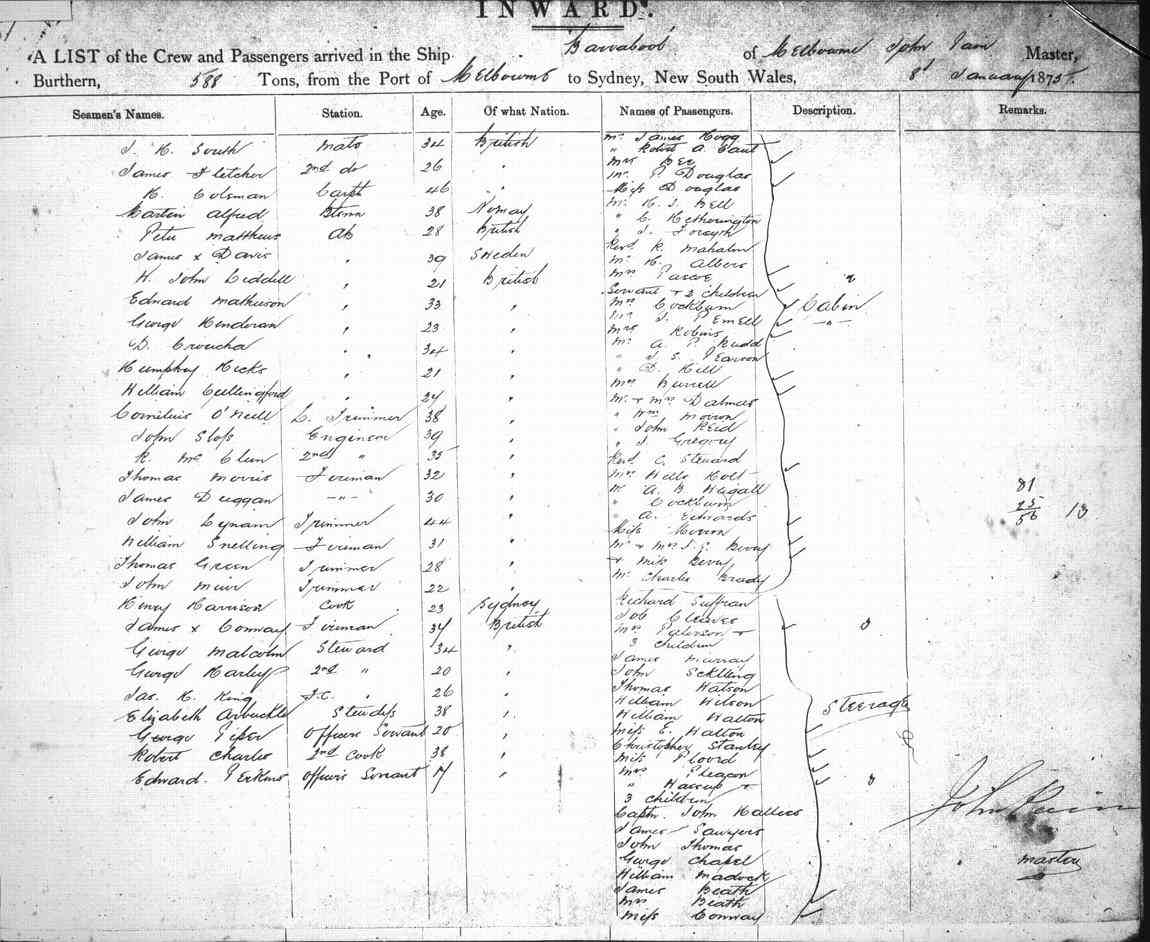 INWARDS.
A LIST of the Crew and Passengers arrived in the Ship of Melbourne John Master,
Burthern, 588 Tons, from the Port of Melbourne to Sydney, New South Wales, 8th January 1875.
Seamen's Names. Station. Age. Of what Nation. Names of Passengers. Description. Remarks.
J. H. South Mate 34 British
James Fletcher 2nd do 26 "
H. Coleman Carpt 46 "
Martin Alfred 38 Norway
Peter Matthews AB 28 British
James x Davis " 39 Sweden
H. John Liddell " 21 British
Edward Mathieson " 33 "
George Henderson " 23 "
D. Croucha " 34 "
Humphry Hicks " 21 "
William Cullingford " 24 "
Cornelius O'Neill L. Trimmer 38 "
John Sloss Engineer 39 "
R. Mc Clun 2nd " 35 "
Thomas Morris Fireman 32 "
James Duggan -"- 30 "
John Lynam Trimmer 44 "
William Snelling Fireman 31 "
Thomas Green Trimmer 28 "
John Muir Trimmer 22 "
Henry Harrison Cook 23 Sydney
James x Conway Fireman 34 British
George Malcolm Steward 34 "
George Harley 2nd " 20 "
Jas. H. King F.C. " 26 "
Elizabeth Arbuckle Stewdss 38 "
George Piper Officers Servant 20 "
Robert Charles 2nd Cook 38 "
Edward Perkins Officers Servant 17 "
Mr James Hogg
" Robert A. Gaut
Mrs Bee
Mr P Douglas
Miss Douglas
Mr H. J. Bell
" C. Hetherington
" J. Forsyth
Revd R. Mahalm
Mr H. Albers
Mrs Pascoe
Servant + 2 children
Mrs Cockburn
Mr J. P Emell
Mrs Robins
Mr A. P. Rudd
" J. S. Pearson
" D. Hill
Mrs Burrell
Mr + Mrs Dalmar
" Wm Morron
" John Reid
" J. Gregory
Revd C. Steward
Mrs Wills Holt
Mr A. B. Wagall
" Cockburn
" A. Edwards
Miss Morron
Mr + Mrs J. G. Berry
+ Miss Berry
Mr Charles Brady
Cabin
-"-
Richard Suffran
Job Cleaver
Mrs Peterson +
3 children
James Murray
John Schlling
Thomas Watson
William Wilson
William Walton
Miss E. Walton
Christopher Stanley
Miss Flood
Mrs Pheagon
" Harrup +
3 children
Captn John Hallies
James Sawyers
John Thomas
George Chapel
William Madock
James Beath
Mrs Beath
Miss Conway
Steerage
81
25
56
13
Master